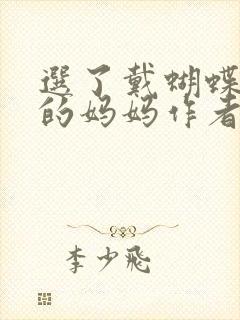 選了戴蝴蝶
的妈妈作者
李少飛